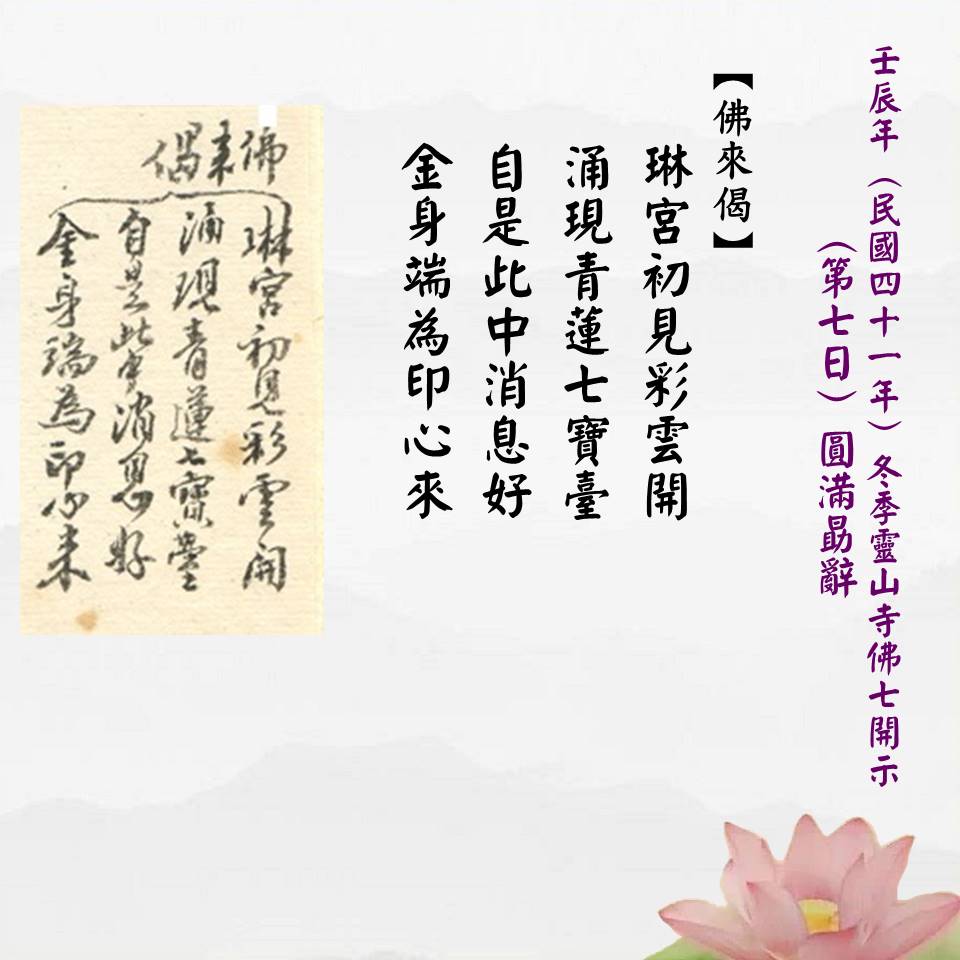 壬辰年（民國四十一年）冬季靈山寺佛七開示
（第七日）圓滿勗辭
【佛來偈】
琳宮初見彩雲開
涌現青蓮七寶臺
自是此中消息好
金身端為印心來
佛来偈
琳宮初見彩雲開
涌現青蓮七寶臺
自是此中消息好
金身端為印心来